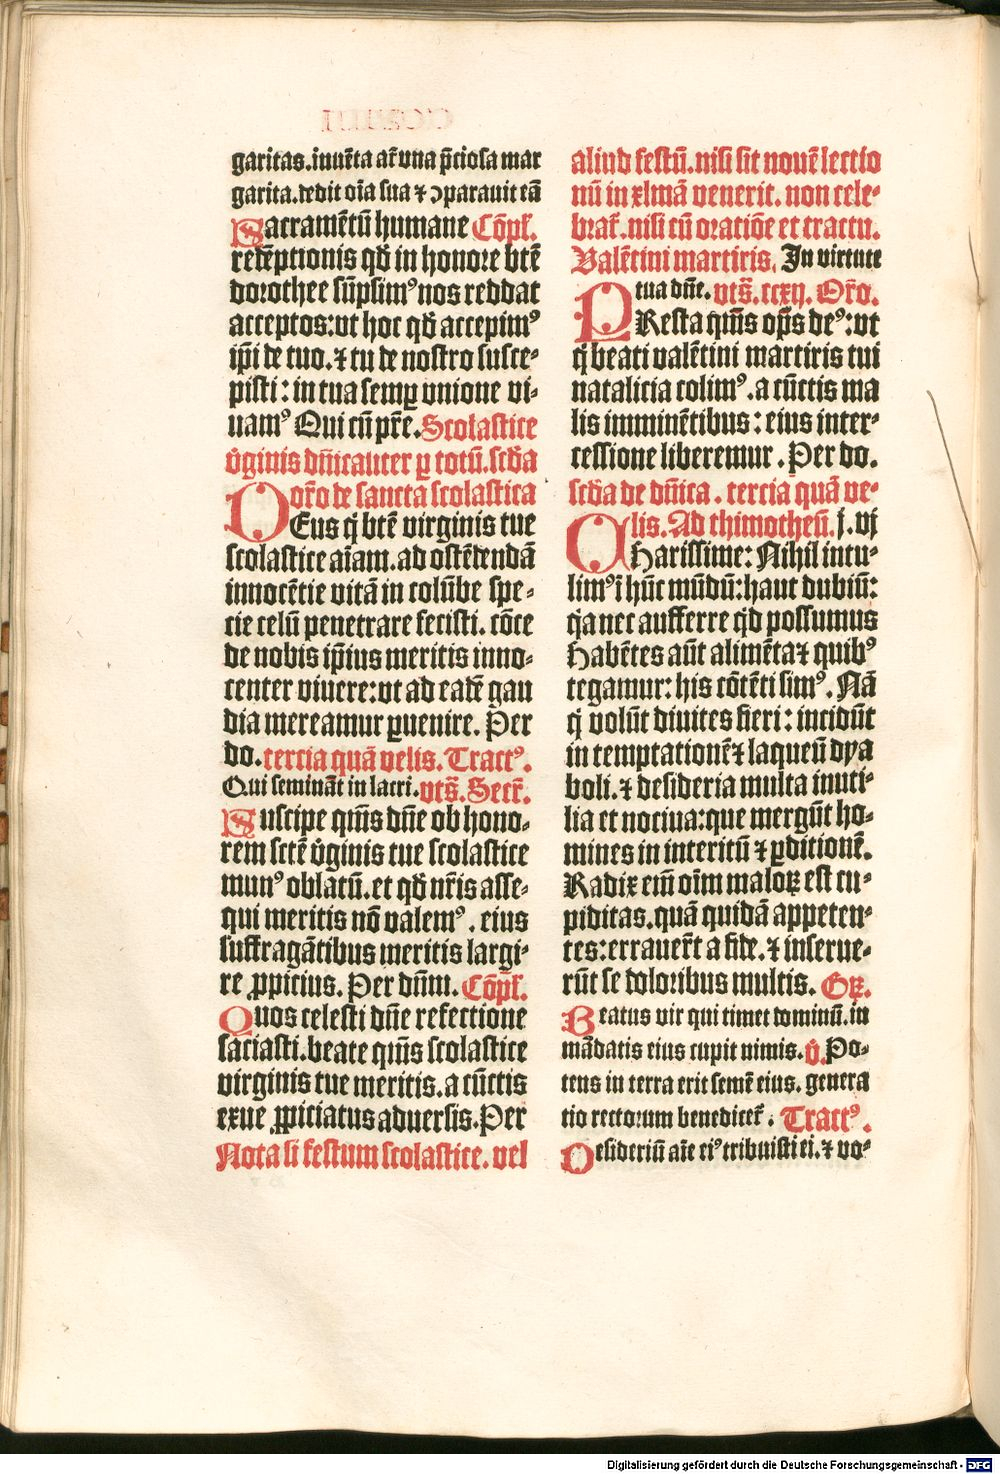 garitas.inuēta aūt una p̄ciosa mar
garita.dedit oīa sua ⁊ ↄparauit eā
Sacramētū humane Cōpł.
redēptionis qđ in honore btē
dorothee sūpsimꝰ nos reddat
acceptos:vt hoc qđ accepimꝰ
ip̄i de tuo.⁊ tu de nostro susce-
pisti: in tua semꝑ vnione vi-
uamꝰ Qui cū pr̄e. Scolastice
v̓ginis dn̄icaliter ꝑ totū.scđa
or̄o de sancta scolastica
DEus q̓ btē virginis tue
scolastice aīam.ad ostēdendā
innocētie vitā in colūbe spe-
cie celū penetrare fecisti.cōce
de nobis ip̄ius meritis inno-
center viuere:vt ad eadē gau
dia mereamur ꝑuenire. Per
do. tercia quā velis. Tractꝰ.
Qui semināt in lacri. vts̄. Secr̄.
Suscipe qm̄s dn̄e ob hono-
rem sctē v̓ginis tue scolastice
munꝰ oblatū.et qđ nr̄is asse-
qui meritis nō valemꝰ. eius
suffragātibus meritis largi-
re ꝓpicius. Per dn̄m. Cōpł.
Quos celesti dn̄e refectione
saciasti.beate qm̄s scolastice
virginis tue meritis.a cūctis
exue ꝓpiciatus aduersis.Per
Nota si festum scolastice. vel
aliud festū.nisi sit nouē lectio
nū in xlmā venerit. non cele-
brat̄.nisi cū oratiōe et tractu.
Valētini martiris. In virtute
tua dn̄e. vts̄. ccxij. Or̄o.
PResta qm̄s op̄s deꝰ:vt
q̓ beati valētini martiris tui
natalicia colimꝰ.a cūctis ma
lis imminētibus: eius inter-
cessione liberemur. Per do.
scđa de dn̄ica. tercia quā ve-
lis. Ad thimotheū. j. vj
CHarissime: Nihil intu-
limꝰ ī hūc mūdū:haut dubiū:
q̓a nec aufferre q̓d possumus
Habētes aūt alimēta⁊ quibꝰ
tegamur: his cōtēti simꝰ. Nā
q̓ volūt diuites fieri: incidūt
in temptationē⁊ laqueū dya
boli.⁊ desideria multa inuti-
lia et nociua:que mergūt ho-
mines in interitū ⁊ ꝑditionē.
Radix em̄ oīm maloꝝ est cu-
piditas.quā quidā appeten-
tes:errauer̄t a fide.⁊ inserue-
rūt se doloribus multis. Gꝝ.
Beatus vir qui timet dominū.in
mādatis eius cupit nimis. v̓. Po-
tens in terra erit semē eius. genera
tio rectorum benedicet̄. Tractꝰ.
Desideriū aīe eiꝰ tribuisti ei.⁊ vo-